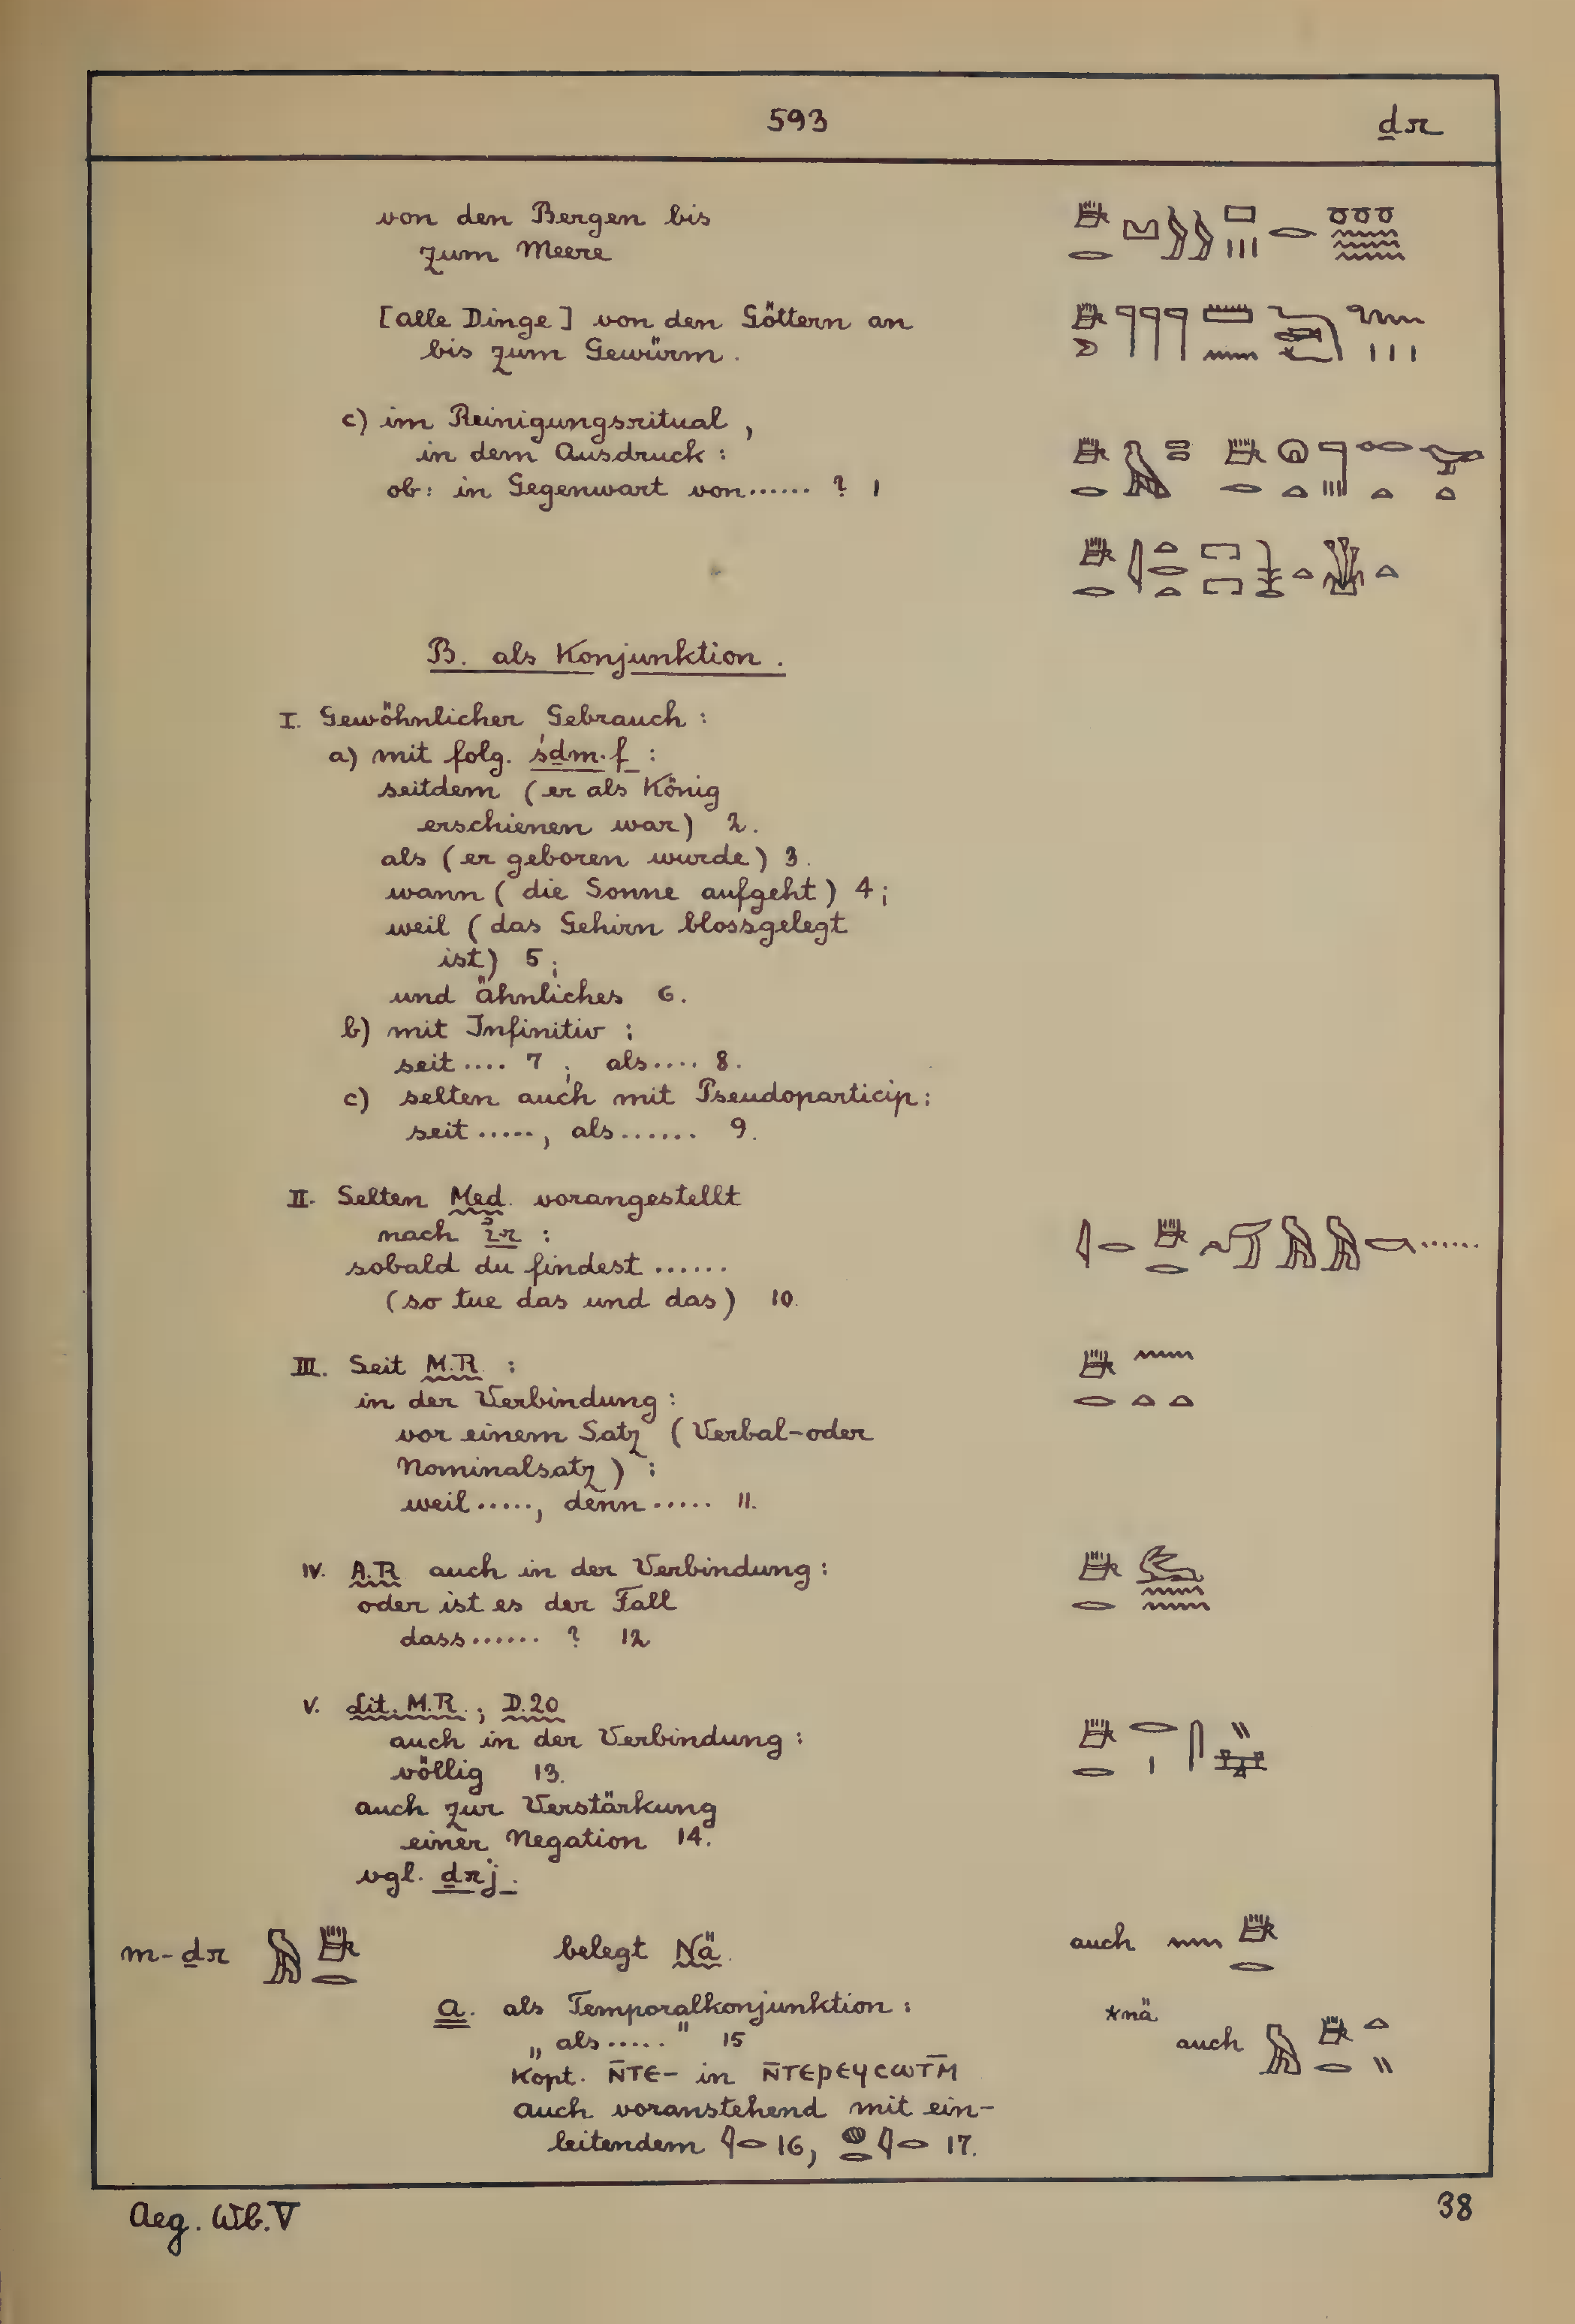 593 ḏr
von den Bergen bis
zum Meere
[alle Dinge] von den Göttern an
bis zum Gewürm.
c) im Reinigungsritual,
in dem Ausdruck:
ob: in Gegenwart von...... ? 1
B. als Konjunktion.
I. Gewöhnlicher Gebrauch:
a) mit folg. śḏm.f :
seitdem (er als König
erschienen war) 2.
als (er geboren wurde) 3.
wann (die Sonne aufgeht) 4;
weil (das Gehirn blossgelegt
ist) 5;
und ähnliches 6.
b) mit Infinitiv:
seit.... 7; als.... 8.
c) selten auch mit Pseudoparticip:
seit....., als...... 9.
II. Selten Med. vorangestellt
nach ỉr :
sobald du findest ......
(so tue das und das) 10.
III. Seit M.R. :
in der Verbindung:
vor einem Satz (Verbal-oder
Nominalsatz) :
weil....., denn..... 11.
IV. A.R. auch in der Verbindung:
oder ist es der Fall
dass...... ? 12
V. Lit. M.R.; D.20
auch in der Verbindung:
völlig 13.
auch zur Verstärkung
einer Negation 14.
vgl. ḏrj.
m-ḏr belegt Nä. auch
a. als Temporalkonjunktion: *nä
„als....." 15 auch
Kopt. N̄ΤЄ- in N̄ΤЄΡЄϤСШΤ̄М
auch voranstehend mit ein-
leitendem 16, 17.
Aeg. Wb. V 38